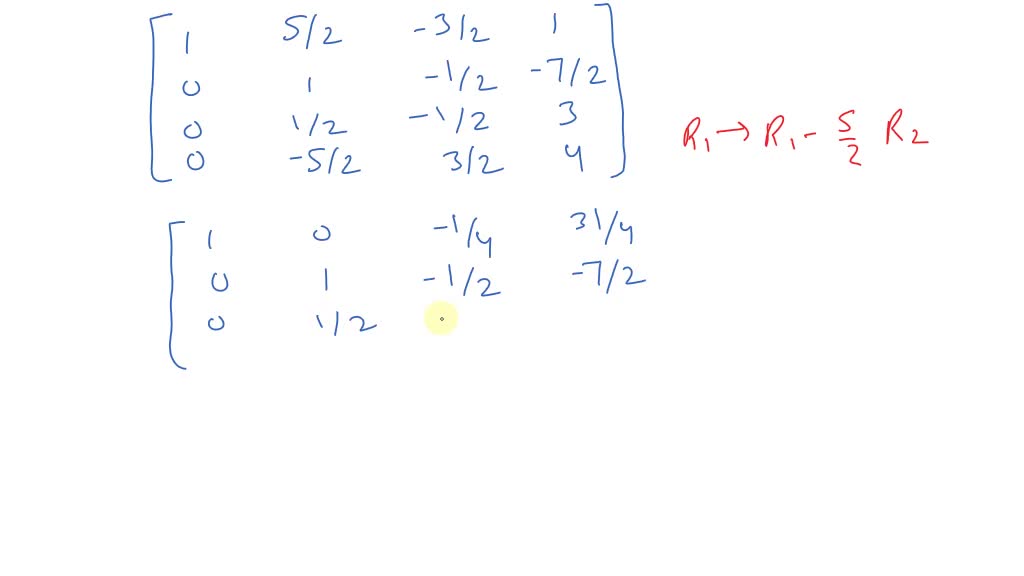 1 5/2 -3/2 1
0 1 -1/2 -7/2
0 1/2 -1/2 3
0 -5/2 3/2 4
R₁ → R₁ - 5/2 R₂
1 0 -1/4 31/4
0 1 -1/2 -7/2
0 1/2